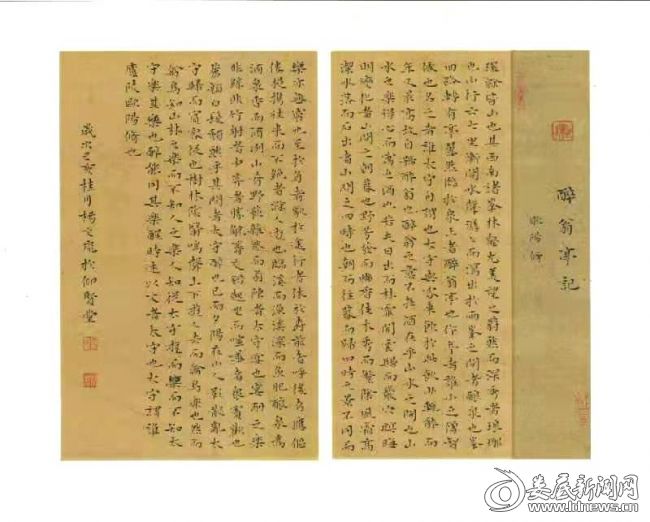 醉翁亭記
歐陽修
環滁皆山也其西南諸峯林壑尤美望之蔚然而深秀者琅琊
也山行六七里漸聞水聲潺潺而瀉出於兩峯之間者釀泉也峯
回路轉有亭翼然臨於泉上者醉翁亭也作亭者誰山之僧智
僊也名之者誰太守自謂也太守與客來飲於此飲少輒醉而
年又最高故自號醉翁也醉翁之意不在酒在乎山水之間也山
水之樂得心而寓酒也若夫日出而林霏開雲歸而巖穴暝晦
明變化者山間之朝暮也野芳發而幽香佳木秀而繁陰風霜高
潔水落而石出者山間之四時也朝而往暮而歸四時之景不同而
樂亦無窮也至於負者歌於途行者休於樹前者呼後者應傴
僂提攜往來而不絕者滁人遊也臨溪而漁溪深而魚肥釀泉為
酒泉香而酒洌山肴野蔌雜然而前陳者太守宴也宴酣之樂
非絲非竹射者中弈者勝觥籌交錯起坐而諠譁者衆賓歡也
蒼顏白髮頹然乎其間者太守醉也已而夕陽在山人影散亂太
守歸而賓客從也樹林陰翳鳴聲上下遊人去而禽鳥樂也然而
禽鳥知山林之樂而不知人之樂人知從太守遊而樂而不知太
守樂其樂也醉能同其樂醒能述以文者太守也太守謂誰
廬陵歐陽修也
歲次己亥桂月楊文於仰賢堂
娄底新闻网
www.ldnews.cn